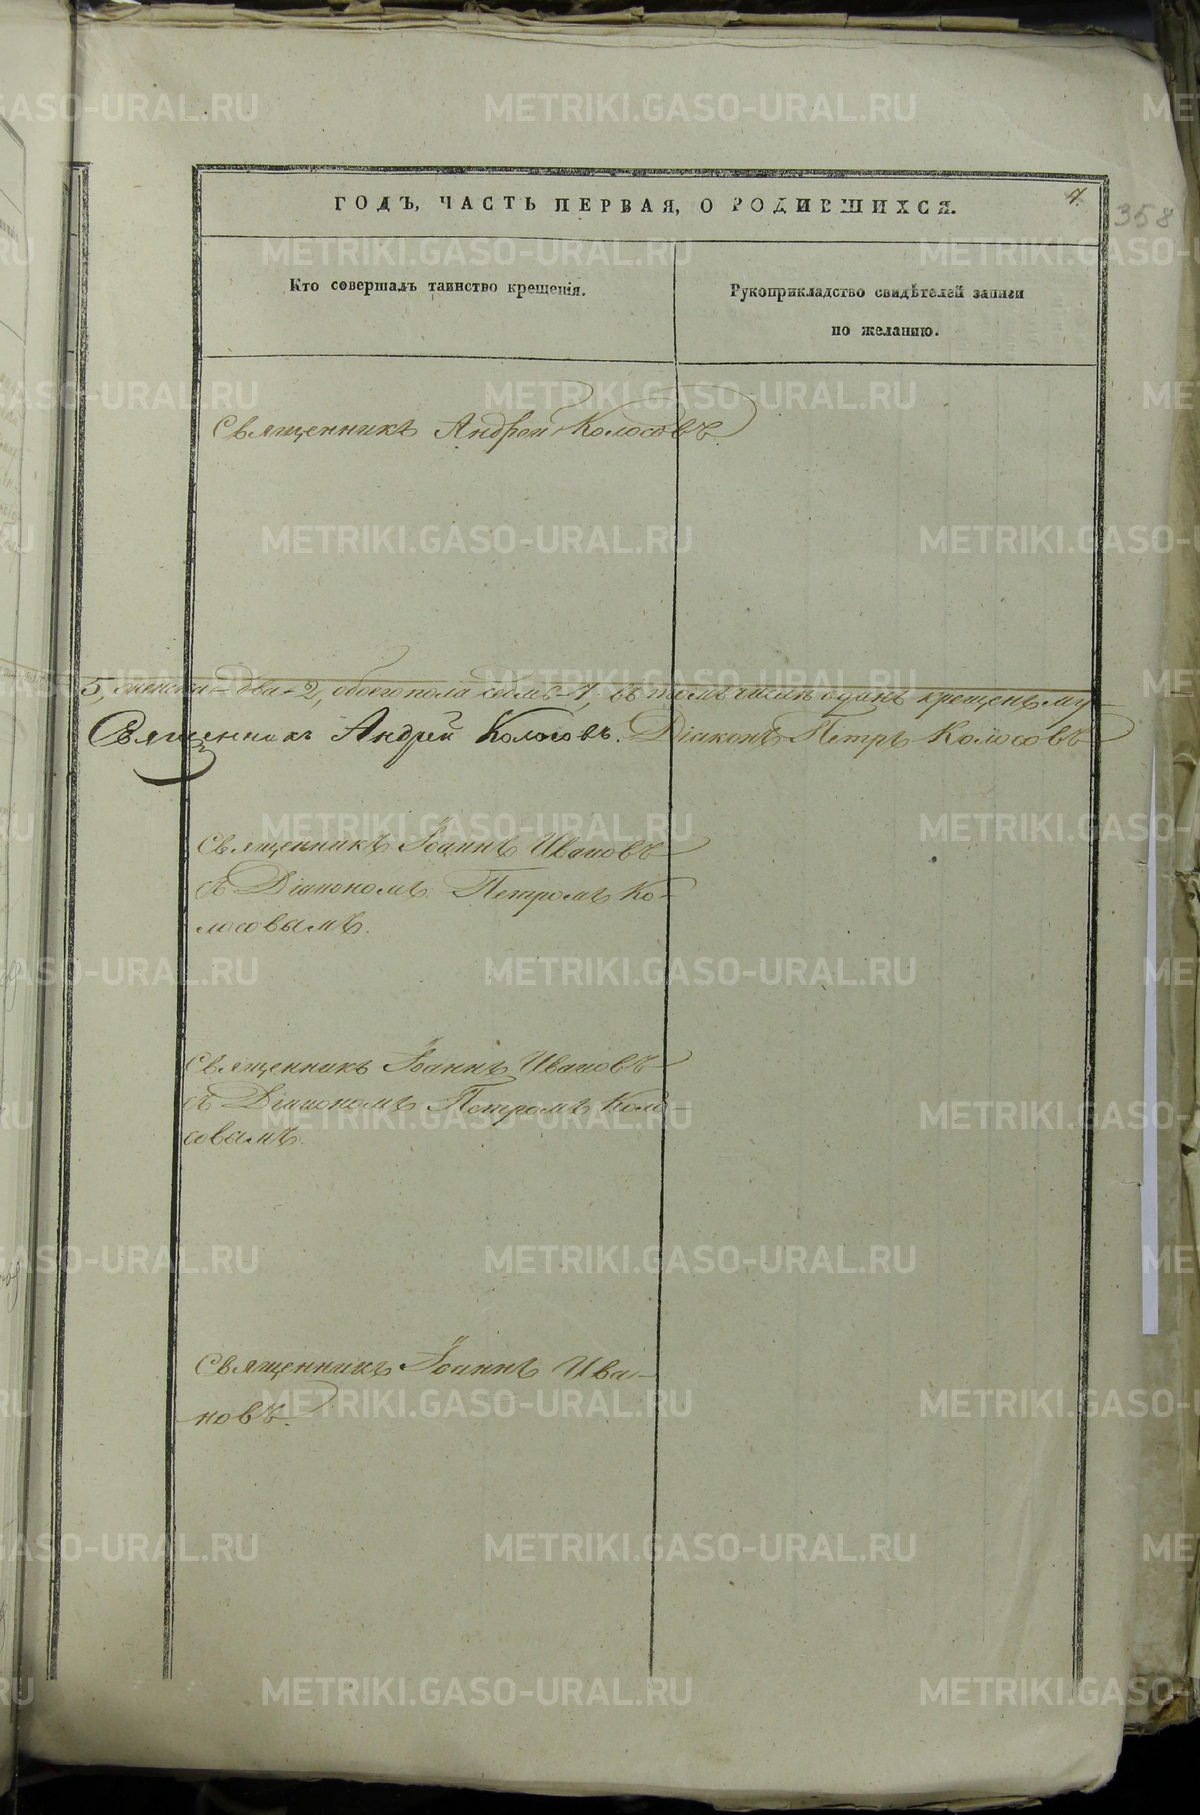 ГОДЪ, ЧАСТЬ ПЕРВАЯ, О РОДИВШИХСЯ.
4.
358
Кто совершалъ таинство крещенія.
Рукоприкладство свидѣтелей записи
по желанію.
Священникъ Андрей Колосовъ
5, женска – два – 2, обоего пола семь – 7, въ томъ числѣ одинъ крещенъ му-
Священникъ Андрей Колосовъ. Діаконъ Петръ Колосовъ
Священникъ Іоаннъ Ивановъ
съ Діакономъ Петромъ Ко-
лосовымъ.
Священникъ Іоаннъ Ивановъ
съ Діакономъ Петромъ Коло-
совымъ.
Священникъ Іоаннъ Ива-
новъ.
METRIKI.GASO-URAL.RU